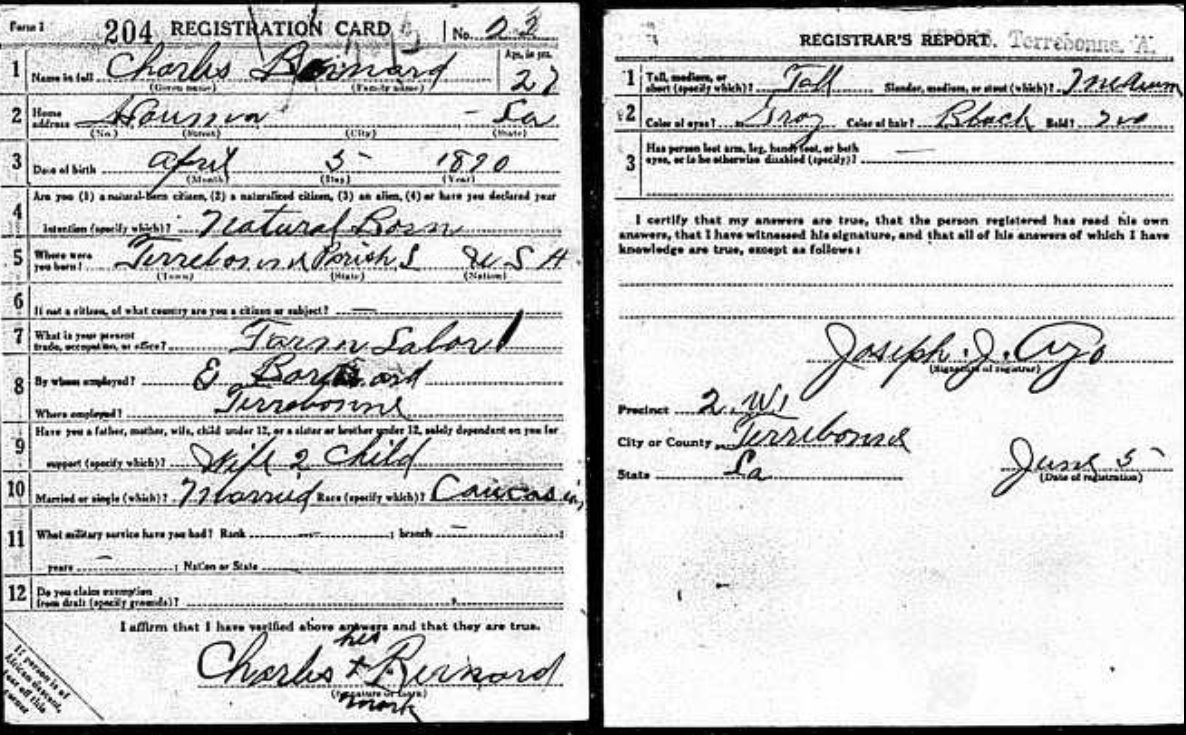 Form 1 204 REGISTRATION CARD No. 23
1 Name in full Charles Bernard Age, in yrs. 27
(Given name) (Family name)
2 Home address Houma La
(No.) (Street) (City) (State)
3 Date of birth April 5 1890
(Month) (Day) (Year)
Are you (1) a natural-born citizen, (2) a naturalized citizen, (3) an alien, (4) or have you declared your
4 intention (specify which)? Natural Born
5 Where were you born? Terrebonne Parish L U S A
(Town) (State) (Nation)
6 If not a citizen, of what country are you a citizen or subject? —
7 What is your present trade, occupation, or office? Farm Labor
8 By whom employed? E
Where employed? Terrebonne
9 Have you a father, mother, wife, child under 12, or a sister or brother under 12, solely dependent on you for
support (specify which)? Wife 2 Child
10 Married or single (which)? Married Race (specify which)? Caucasian
11 What military service have you had? Rank — ; branch — ;
years — ; Nation or State
12 Do you claim exemption from draft (specify grounds)?
I affirm that I have verified above answers and that they are true.
his
Charles x Bernard
(Signature or mark)
mark
If person is of
African descent,
tear off this
corner
REGISTRAR'S REPORT. Terrebonne,
1 Tall, medium, or short (specify which)? Tall Slender, medium, or stout (which)? Medium
2 Color of eyes? Gray Color of hair? Black Bald? no
3 Has person lost arm, leg, hand, foot, or both eyes, or is he otherwise disabled (specify)? —
I certify that my answers are true, that the person registered has read his own
answers, that I have witnessed his signature, and that all of his answers of which I have
knowledge are true, except as follows:
Joseph. J. Ayo
(Signature of registrar)
Precinct 2. W1
City or County Terrebonne
State La June 5
(Date of registration)